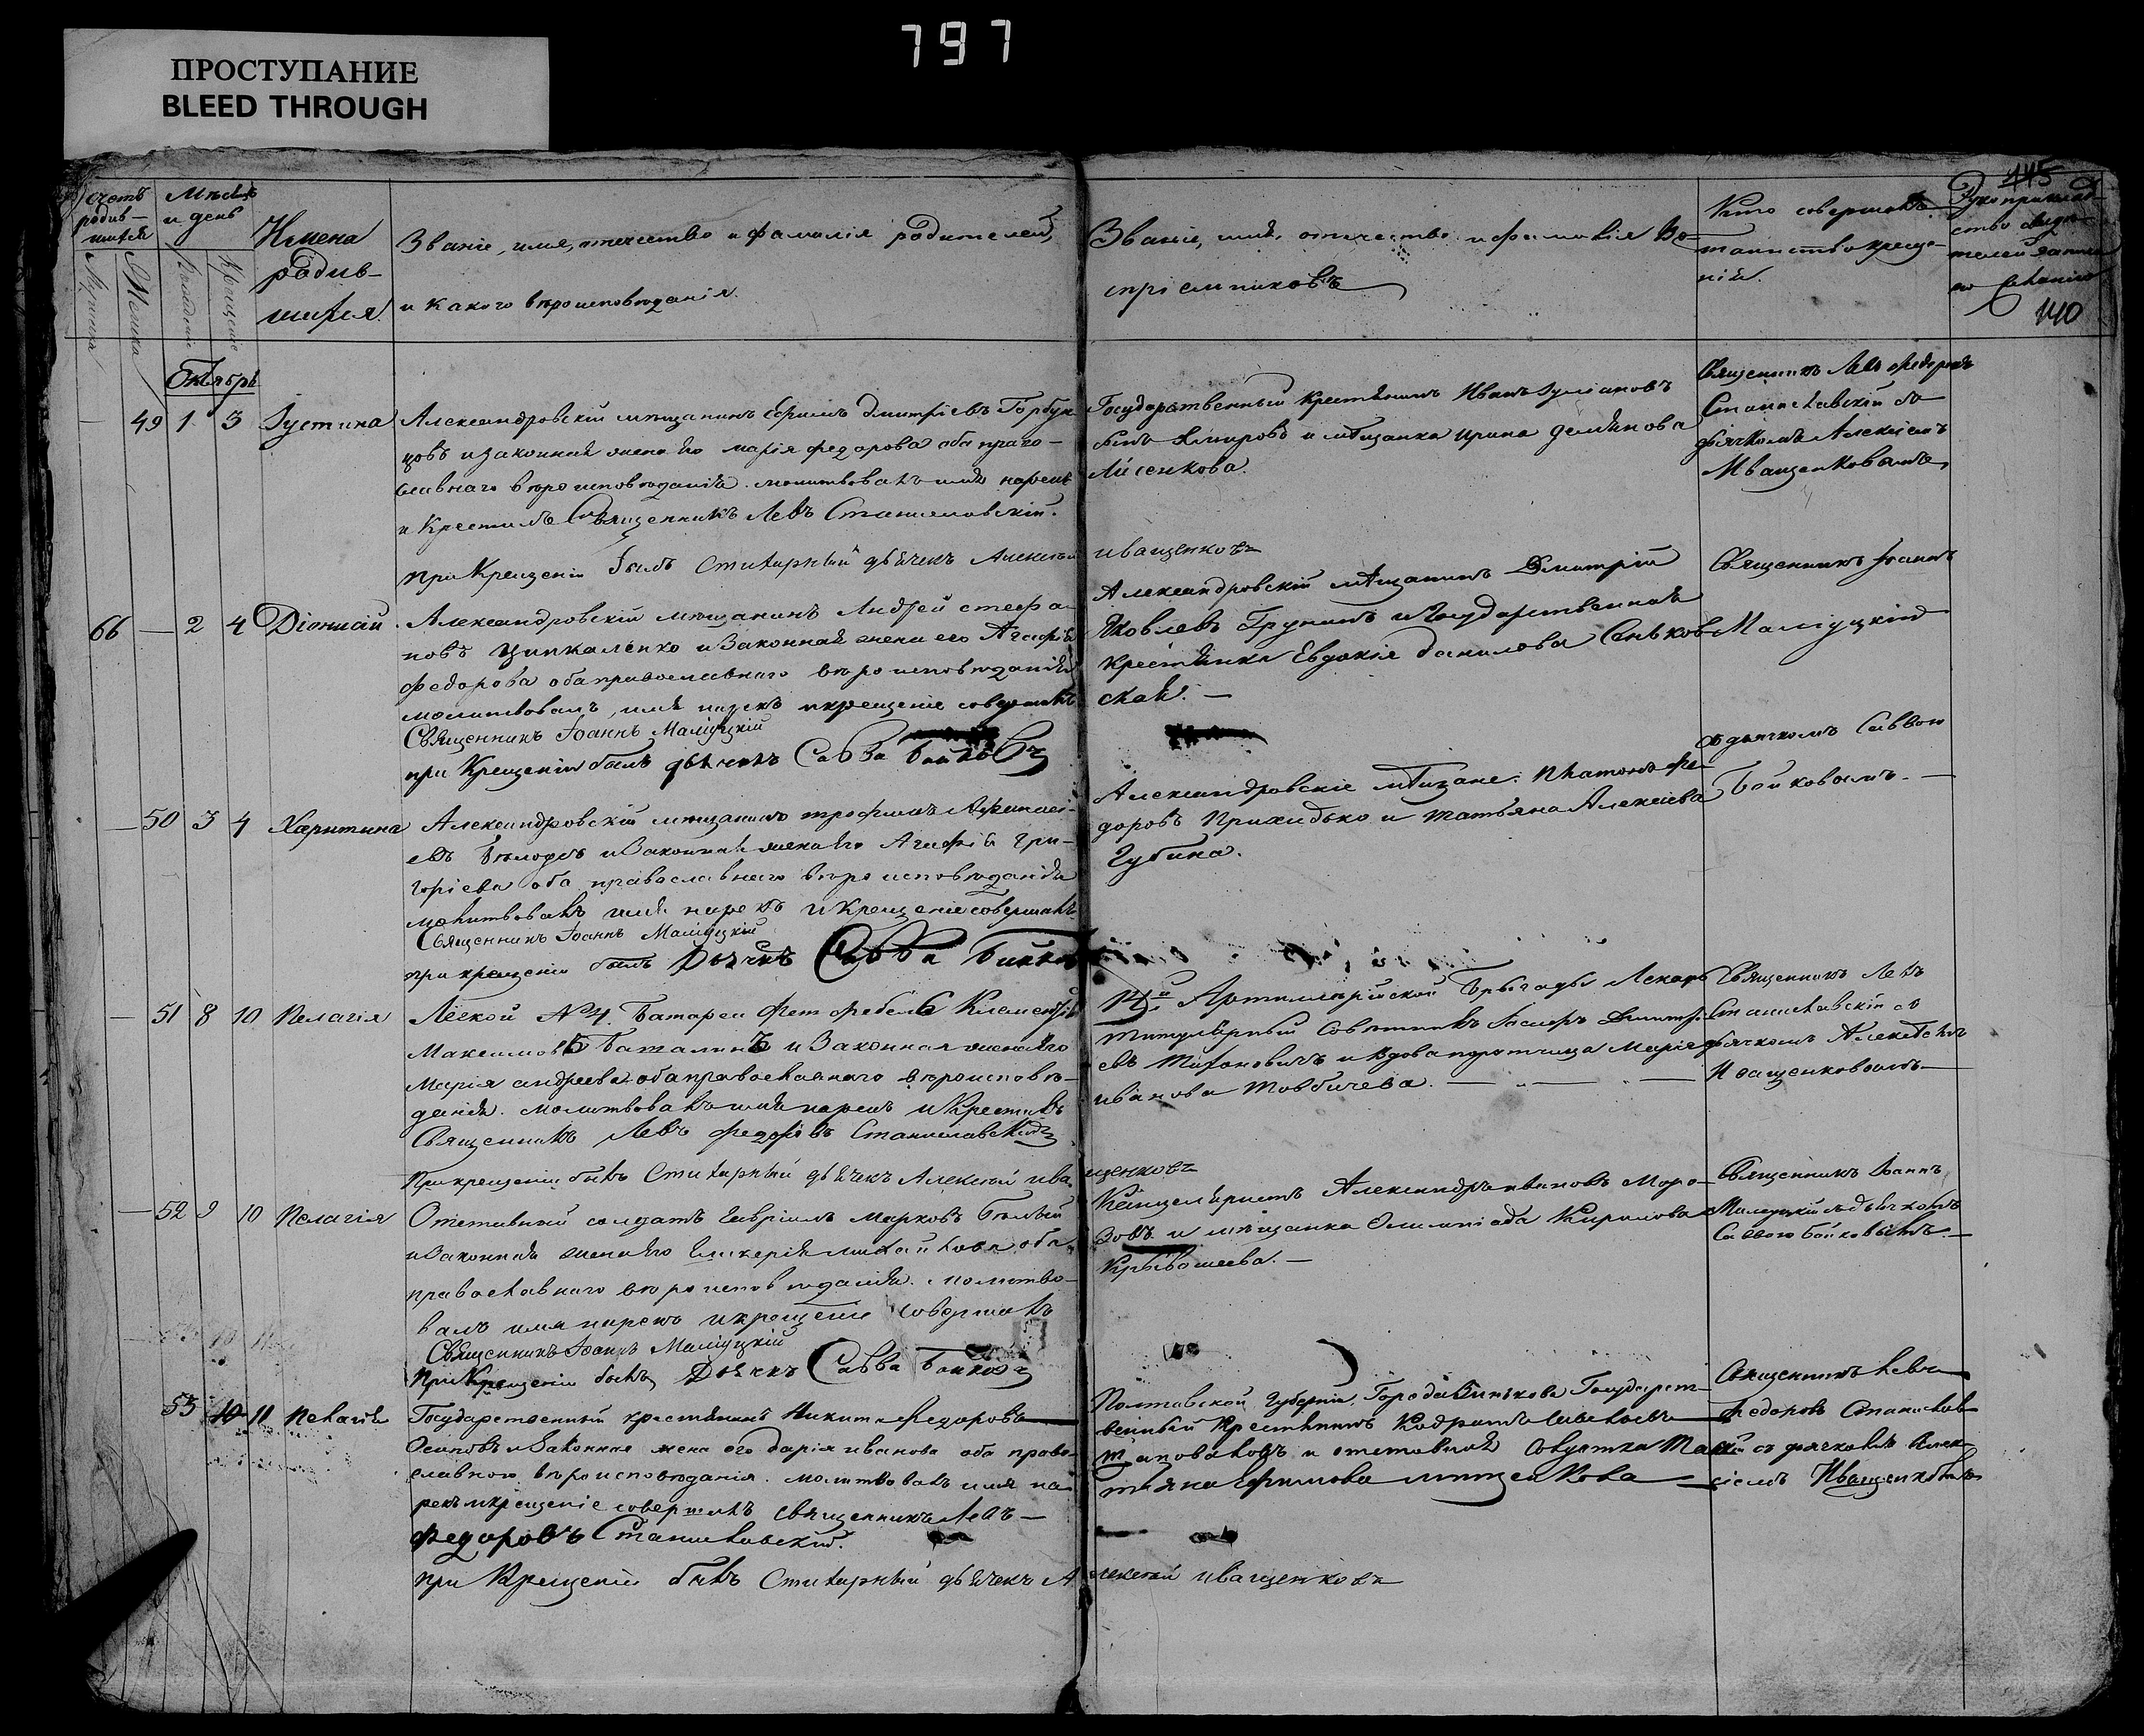 797
ПРОСТУПАНИЕ
BLEED THROUGH
445
140
Счетъ родив-шихся
Мужска
Женска
Мѣсяцъ и день
Рожденія
Крещенія
Имена
родив-
шихся.
Званіе, имя, отчество и фамилія родителей,
и какого вѣроисповѣданія.
Званіе, имя, отчество и фамилія Во-
спріемниковъ
Кто совершалъ
таинство креще-
нія.
Рукоприклад-
ство свидѣ-
телей записи
по желанію
Октябрь
49 1 3 Іустина
Александровскій мѣщанинъ Ефимъ Дмитріевъ Горбун
цовъ и законная жена его Марія Федорова оба право-
славнаго вѣроисповѣданія. молитвовалъ имя нарекъ
и Крестилъ Священникъ Левъ Станиславскій.
при Крещеніи былъ Стихарный дьячекъ Алексѣй
иващенковъ
Государственный крестьянинъ Иванъ
и мѣщанка Ирина Демьянова
Лисенкова.
Священникъ Левъ Федоровъ
Станиславскій съ
дьячкомъ Алексіемъ
Иващенковымъ
66 — 2 4 Діонисій
Александровскій мѣщанинъ Андрей Стефа-
новъ Ципкаленко и Законная жена его Агафія
Федорова оба православнаго вѣроисповѣданія
молитвовалъ, имя нарекъ и крещеніе совершилъ
Священникъ Іоаннъ Маліуцкій
при Крещеніи былъ дьячекъ Савва Бойковъ
Александровскій мѣщанинъ Дмитрій
Яковлевъ и Государственная
крестьянка Евдокія Данилова Сеньков-
ская. —
Священникъ Іоаннъ
Маліуцкій
съ дьячкомъ Саввою
Бойковымъ. —
— 50 3 4 Харитина
Александровскій мѣщанинъ Трофимъ Афанасі-
евъ и Законная жена его Агафія Гри-
горіева оба православнаго вѣроисповѣданія
молитвовалъ имя нарекъ и Крещеніе совершилъ
Священникъ Іоаннъ Маліуцкій
при крещеніи былъ Дьячекъ Савва Бойковъ
Александровскіе мѣщане: Платонъ Фе-
доровъ Прихидько и Татьяна Алексіева
Губина.
— 51 8 10 Пелагія
Легкой №4. Батареи Фетфебель Клементій
Максимовъ Баталинъ и Законная жена его
Марія Андреева оба православнаго вѣроисповѣ-
данія. молитвовалъ имя нарекъ и Крестилъ
Священникъ Левъ Федоровъ Станиславскій
При крещеніи былъ Стихарный дьячекъ Алексѣй ива
щенковъ
14й Артиллерійской Бригады Лекарь
Титулярный Совѣтникъ Дмитрі-
евъ Тихановичъ и вдова порутчица Марія
иванова Товбичева. —
Священникъ Левъ
Станиславскій съ
дьячкомъ Алексѣемъ
Иващенковымъ —
— 52 9 10 Пелагія
Отставный солдатъ Гавріилъ Марковъ Бѣлый
и Законная жена его Гликерія Михайлова оба
православнаго вѣроисповѣданія. Молитво-
валъ имя нарекъ и крещеніе совершилъ
Священникъ Іоаннъ Маліуцкій
При Крещеніи былъ Дьячекъ Савва Бойковъ
Канцеляристъ Александръ ивановъ Моро-
зовъ и мѣщанка Олимпіада Кирилова
Кривошеева. —
Священникъ Іоаннъ
Маліуцкій съ дьячкомъ
Саввою Бойковымъ. —
53 10 11 Пелагія
Государственный крестьянинъ Никита Федоровъ
Осиповъ и Законная жена его Дарія иванова оба право-
славного вѣроисповѣданія. молитвовалъ имя на-
рекъ и крещеніе совершилъ священникъ Левъ —
Федоровъ Станиславскій.
при Крещеніи былъ Стихарный дьячекъ А
лексѣй иващенковъ
Полтавской Губерніи, Города Зинькова Государст-
венный Крестьянинъ Кодратъ
и отставная Та-
тьяна Ефимова
Священникъ Левъ
Федоровъ Станислав-
скій съ дьячкомъ Алек-
сіемъ Иващенковымъ